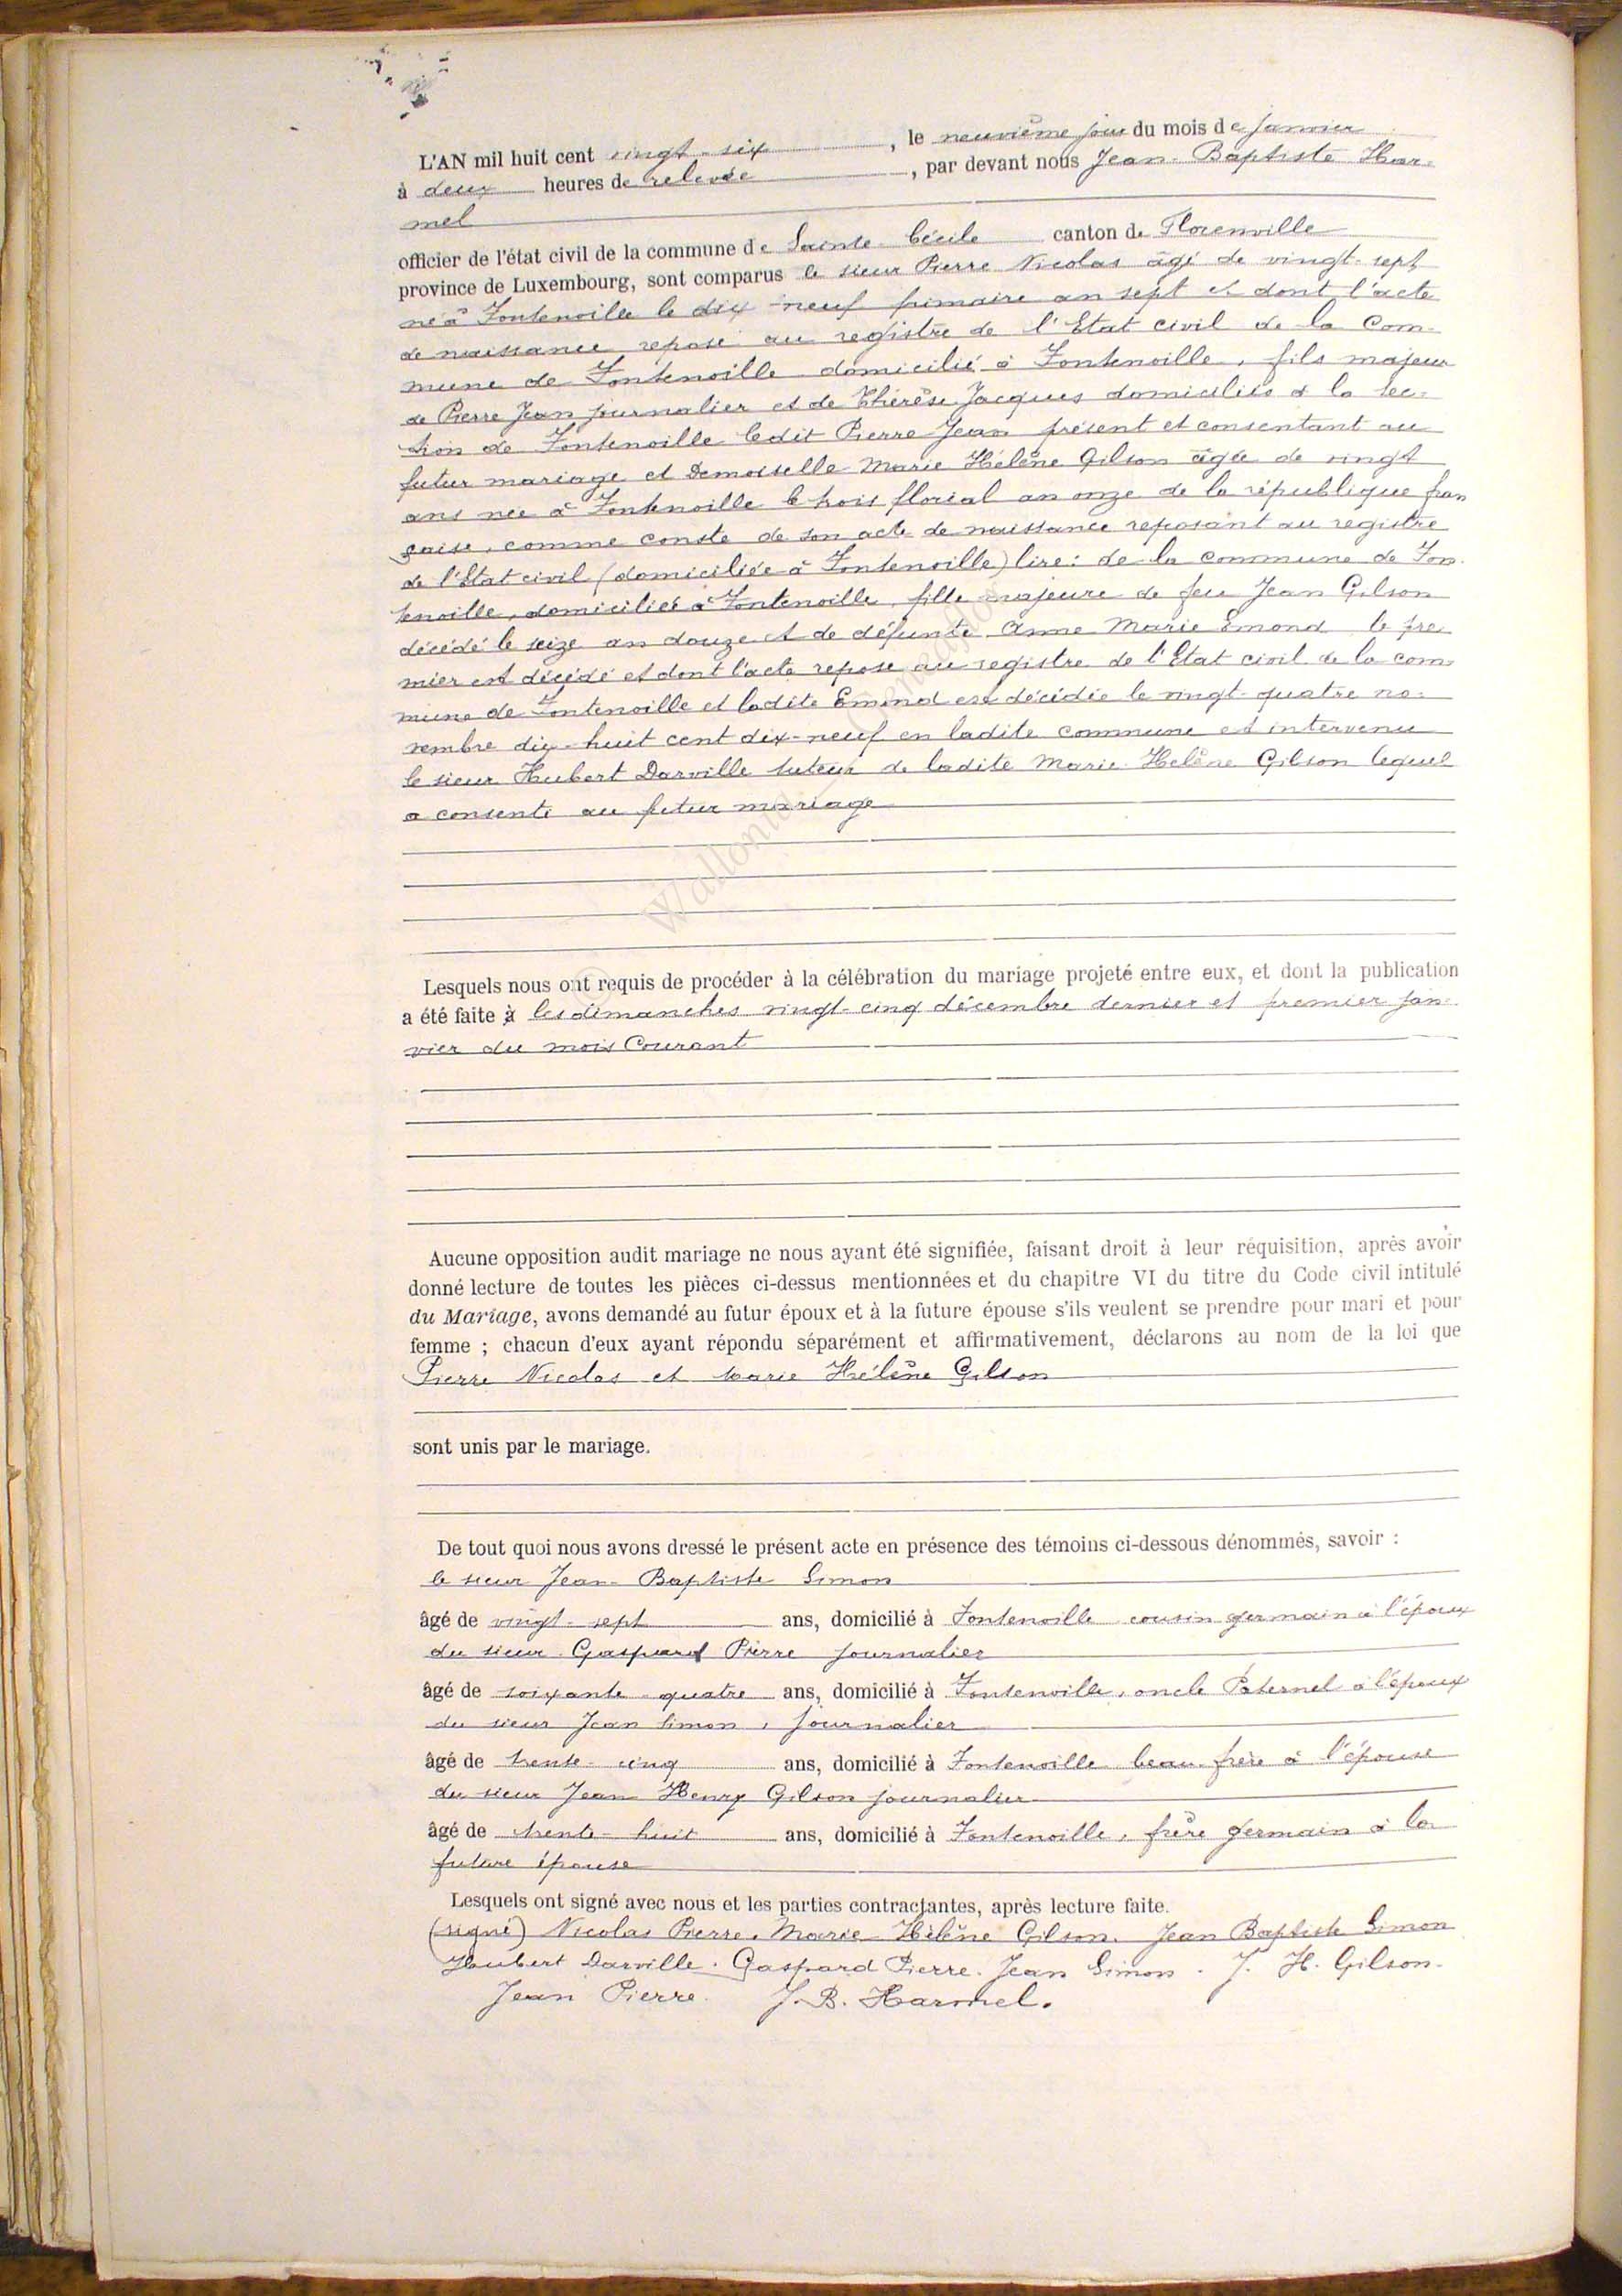 L'AN mil huit cent vingt-six, le neuvième jour du mois de janvier
à deux heures de relevée, par devant nous Jean-Baptiste Har-
mel
officier de l'état civil de la commune de Sainte-Cécile canton de Florenville
province de Luxembourg, sont comparus le sieur Pierre Nicolas âgé de vingt-sept
né à Fontenoille le dix-neuf frimaire an sept et dont l'acte
de naissance repose au registre de l'Etat civil de la Com-
mune de Fontenoille domicilié à Fontenoille, fils majeur
de Pierre Jean journalier et de Thérèse Jacques domiciliés à la sec-
tion de Fontenoille ledit Pierre Jean présent et consentant au
futur mariage et Demoiselle Marie Hélène Gilson âgée de vingt
ans née à Fontenoille le trois florial an onze de la république fran
çaise, comme conste de son acte de naissance reposant au registre
de l'Etat civil (domiciliée à Fontenoille) lire: de la commune de Fon-
tenoille, domiciliée à Fontenoille, fille majeure de feu Jean Gilson
décédé le seize an douze et de défunte Anne Marie Emond le pre-
mier est décédé et dont l'acte repose au registre de l'Etat civil de la com-
mune de Fontenoille et ladite Emond est décédée le vingt-quatre no-
vembre dix-huit cent dix-neuf en ladite commune est intervenu
le sieur Hubert Darville tuteur de ladite Marie Hélène Gilson lequel
a consenti au futur mariage
Lesquels nous ont requis de procéder à la célébration du mariage projeté entre eux, et dont la publication
a été faite à les dimanches vingt-cinq décembre dernier et premier jan-
vier du mois Courant
Aucune opposition audit mariage ne nous ayant été signifiée, faisant droit à leur réquisition, après avoir
donné lecture de toutes les pièces ci-dessus mentionnées et du chapitre VI du titre du Code civil intitulé
du Mariage, avons demandé au futur époux et à la future épouse s'ils veulent se prendre pour mari et pour
femme ; chacun d'eux ayant répondu séparément et affirmativement, déclarons au nom de la loi que
Pierre Nicolas et Marie Hélène Gilson
sont unis par le mariage.
De tout quoi nous avons dressé le présent acte en présence des témoins ci-dessous dénommés, savoir :
le sieur Jean-Baptiste Simon
âgé de vingt-sept ans, domicilié à Fontenoille cousin germain à l'époux
du sieur Gaspard Pierre journalier
âgé de soixante-quatre ans, domicilié à Fontenoille, oncle Paternel à l'époux
du sieur Jean Simon, journalier
âgé de trente-cinq ans, domicilié à Fontenoille beau-frère à l'épouse
du sieur Jean Henry Gilson journalier
âgé de trente-huit ans, domicilié à Fontenoille, frère germain à la
future épouse
Lesquels ont signé avec nous et les parties contractantes, après lecture faite.
(signé) Nicolas Pierre. Marie Hélène Gilson. Jean Baptiste Simon
Hubert Darville. Gaspard Pierre. Jean Simon. J. H. Gilson.
Jean Pierre. J. B. Harmel.